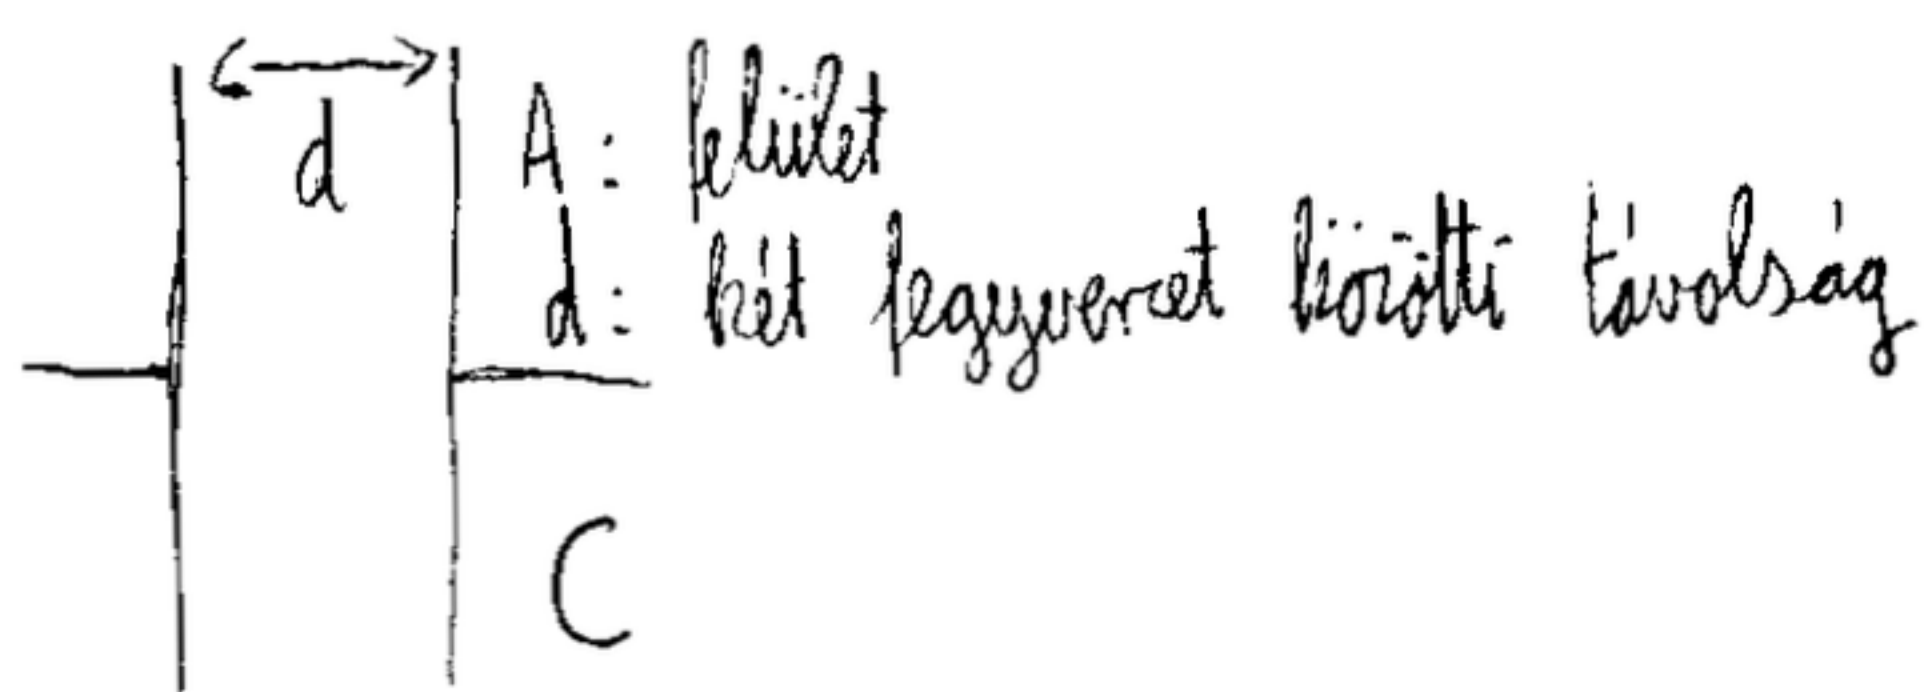 d
A: felület
d: két fegyverzet közötti távolság
C